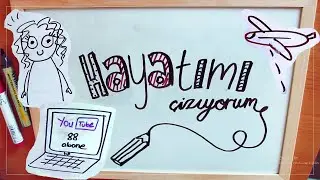 Hayatımı
çiziyorum
You Tube
88
abone